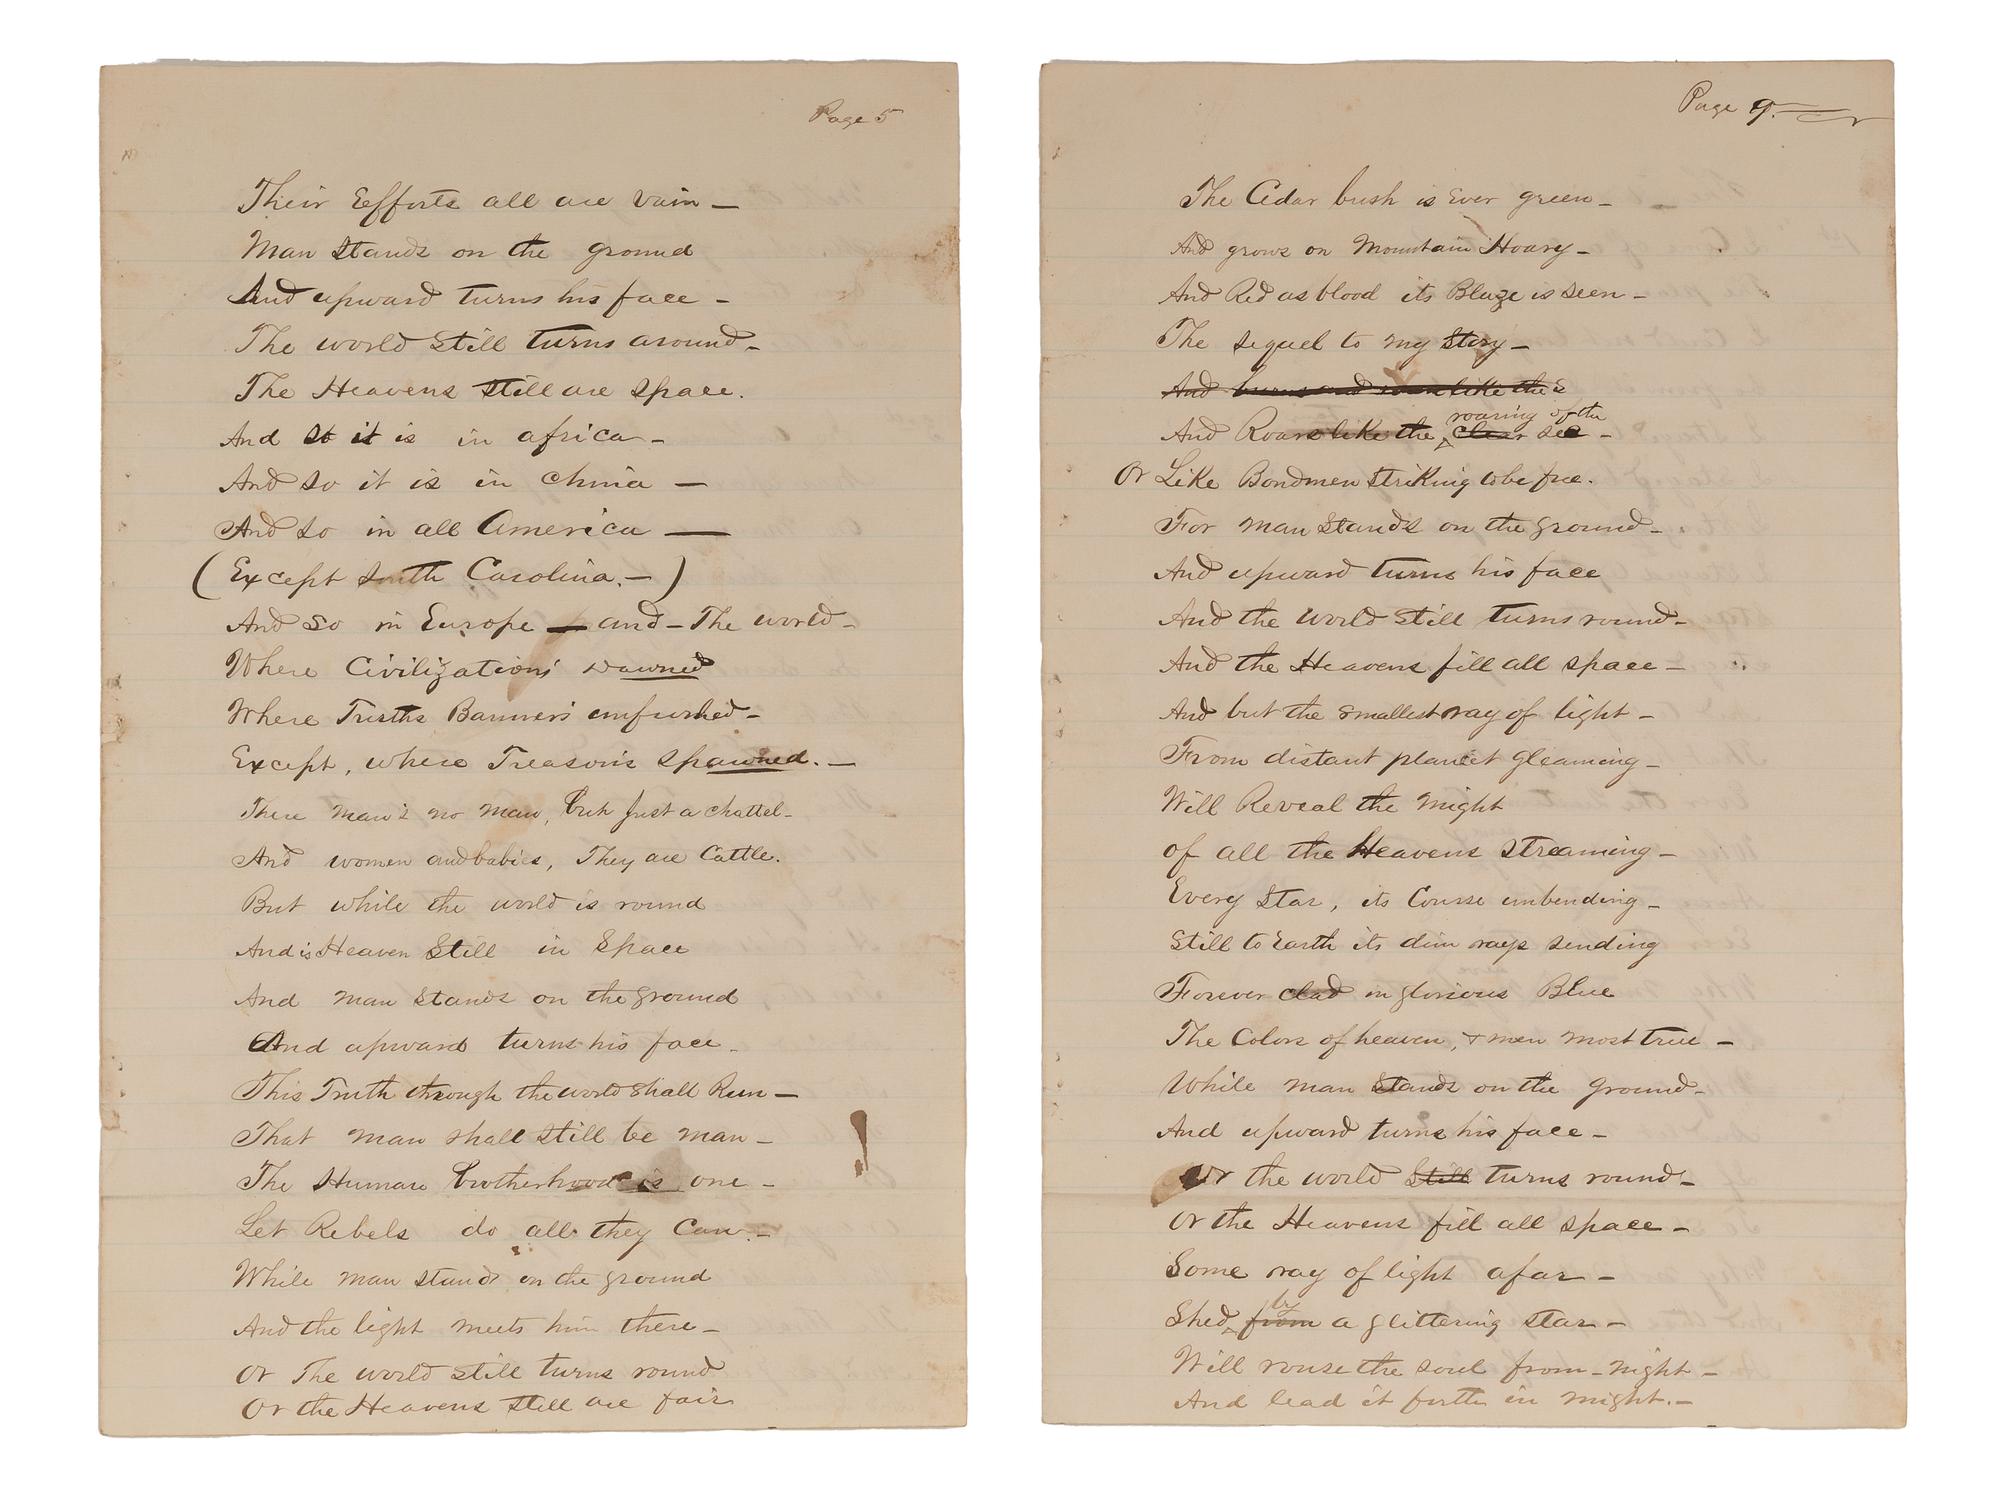 Page 5
Their Efforts all are vain —
Man Stands on the ground
And upward turns his face —
The world Still turns around —
The Heavens Still are Space.
And So it is in africa —
And so it is in china —
And so in all America —
(Except South Carolina. —)
And so in Europe — and — The world —
Where Civilization's Dawned
Where Truths Banner's unfurled —
Except, where Treason's Spawned. —
There man's no man, but Just a chattel —
And women and babies, They are Cattle.
But while the world is round
And is Heaven Still in Space
And man Stands on the ground
And upward turns his face —
This Truth through the world Shall Run —
That man shall still be man —
The Human brotherhood is one —
Let Rebels do all they Can —
While man stands on the ground
And the light meets him there —
Or The world still turns round
Or the Heavens Still are fair
Page 9.
The Cedar bush is Ever green —
And grows on Mountain Hoary —
And Red as blood its Blaze is Seen —
The Sequel to my Story —
And burns and roars like the s
roaring of the
And Roars like the clear See —
Or Like Bondmen Striking to be free.
For man Stands on the Ground —
And upward turns his face
And the world Still turns round —
And the Heavens fill all space —
And but the smallest ray of light —
From distant planet gleaming —
Will Reveal the might
of all the Heavens Streaming —
Every Star, its Course unbending —
Still to Earth its dim rays sending
Forever clad in glorious Blue
The Colors of heaven, & men most true —
While man Stands on the Ground —
And upward turns his face —
Or the world Still turns round —
Or the Heavens fill all space —
Some ray of light afar —
by
Shed from a glittering star —
Will rouse the soul from night —
And lead it forth in might. —